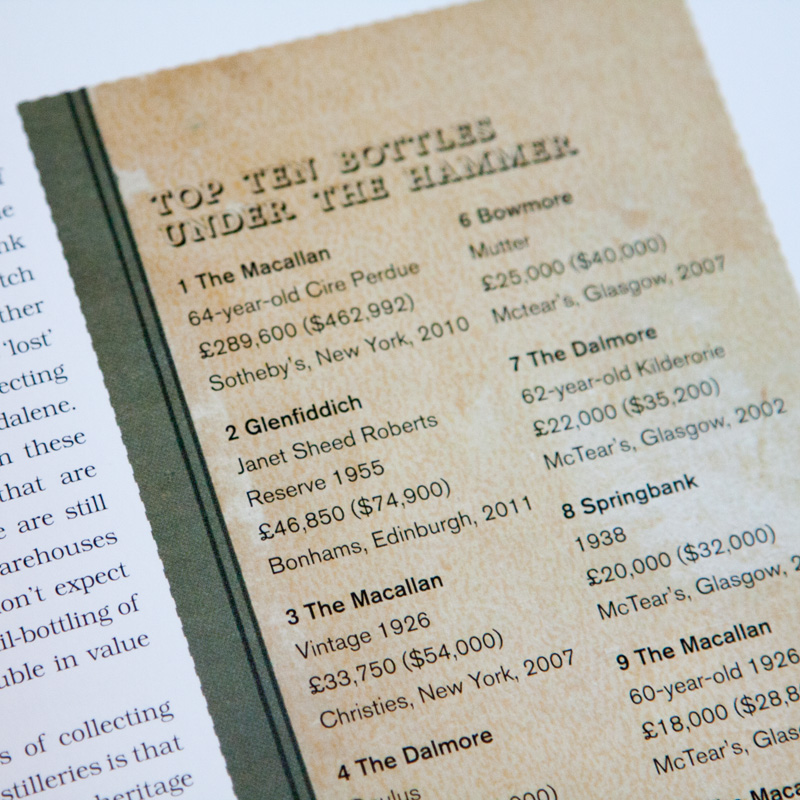 nk
tch
ther
'lost'
ecting
dalene.
n these
that are
e are still
arehouses
on't expect
il-bottling of
uble in value
s of collecting
stilleries is that
heritage
TOP TEN BOTTLES
UNDER THE HAMMER
1 The Macallan
64-year-old Cire Perdue
£289,600 ($462,992)
Sotheby's, New York, 2010
2 Glenfiddich
Janet Sheed Roberts
Reserve 1955
£46,850 ($74,900)
Bonhams, Edinburgh, 2011
3 The Macallan
Vintage 1926
£33,750 ($54,000)
Christies, New York, 2007
4 The Dalmore
6 Bowmore
Mutter
£25,000 ($40,000)
Mctear's, Glasgow, 2007
7 The Dalmore
62-year-old Kilderorie
£22,000 ($35,200)
McTear's, Glasgow, 2002
8 Springbank
1938
£20,000 ($32,000)
McTear's, Glasgow, 2
9 The Macallan
60-year-old 1926
£18,000 ($28,8
McTear's, Glas